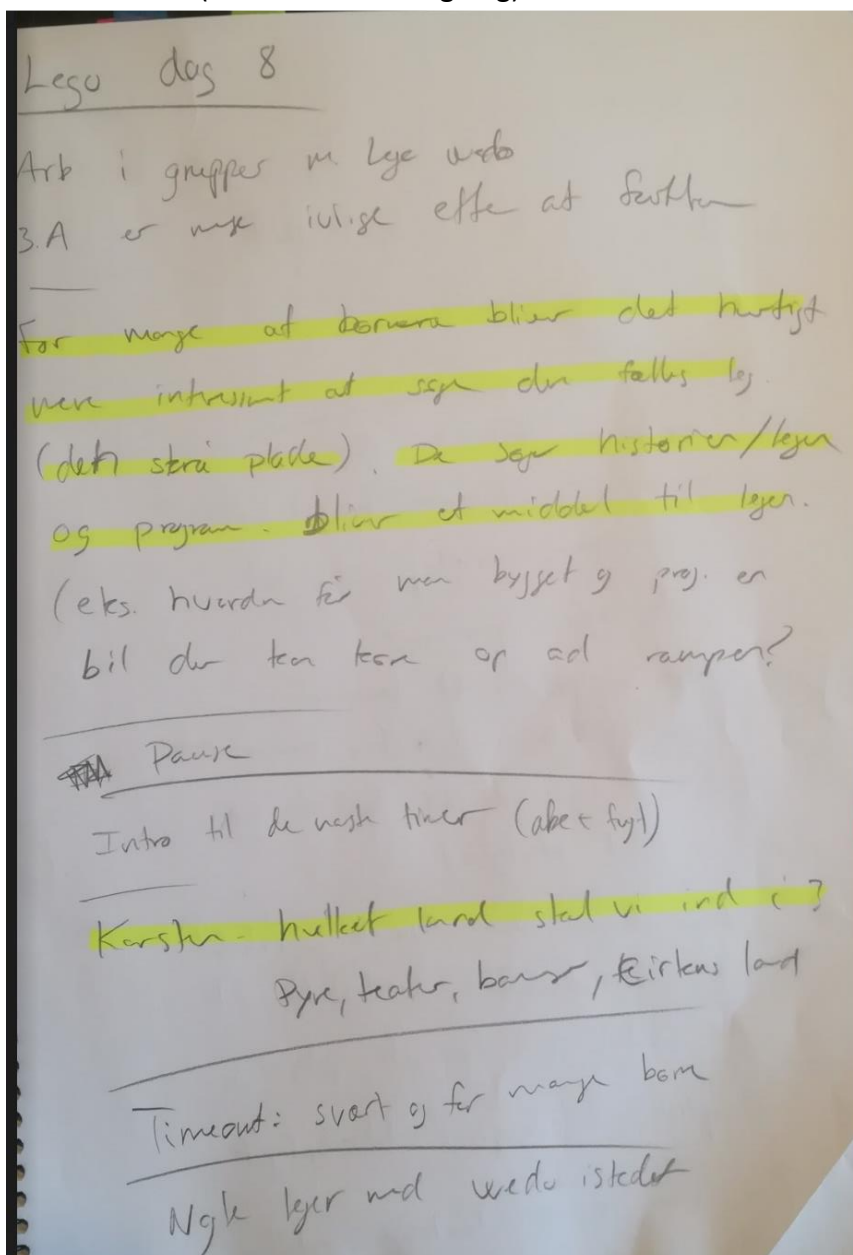 Lego dag 8
Arb i grupper m. Lego wedo
3.A er ivrige efte at
For mange af børnene bliver det hurtigt
mere intressant at søge den fælles leg
(den skrå plade). De søger historien/legen
og program. bliver et middel til legen.
(eks. hvordan får man bygget og prog. en
bil der kan køre op ad rampen?
Pause
Intro til de næste timer (abe + fugl)
Karsten - hvilket land skal vi ind i?
Dyre, teater, banse, Cirkus land
Timeout: svært og for mange børn
Ngle leger med wedo istedet